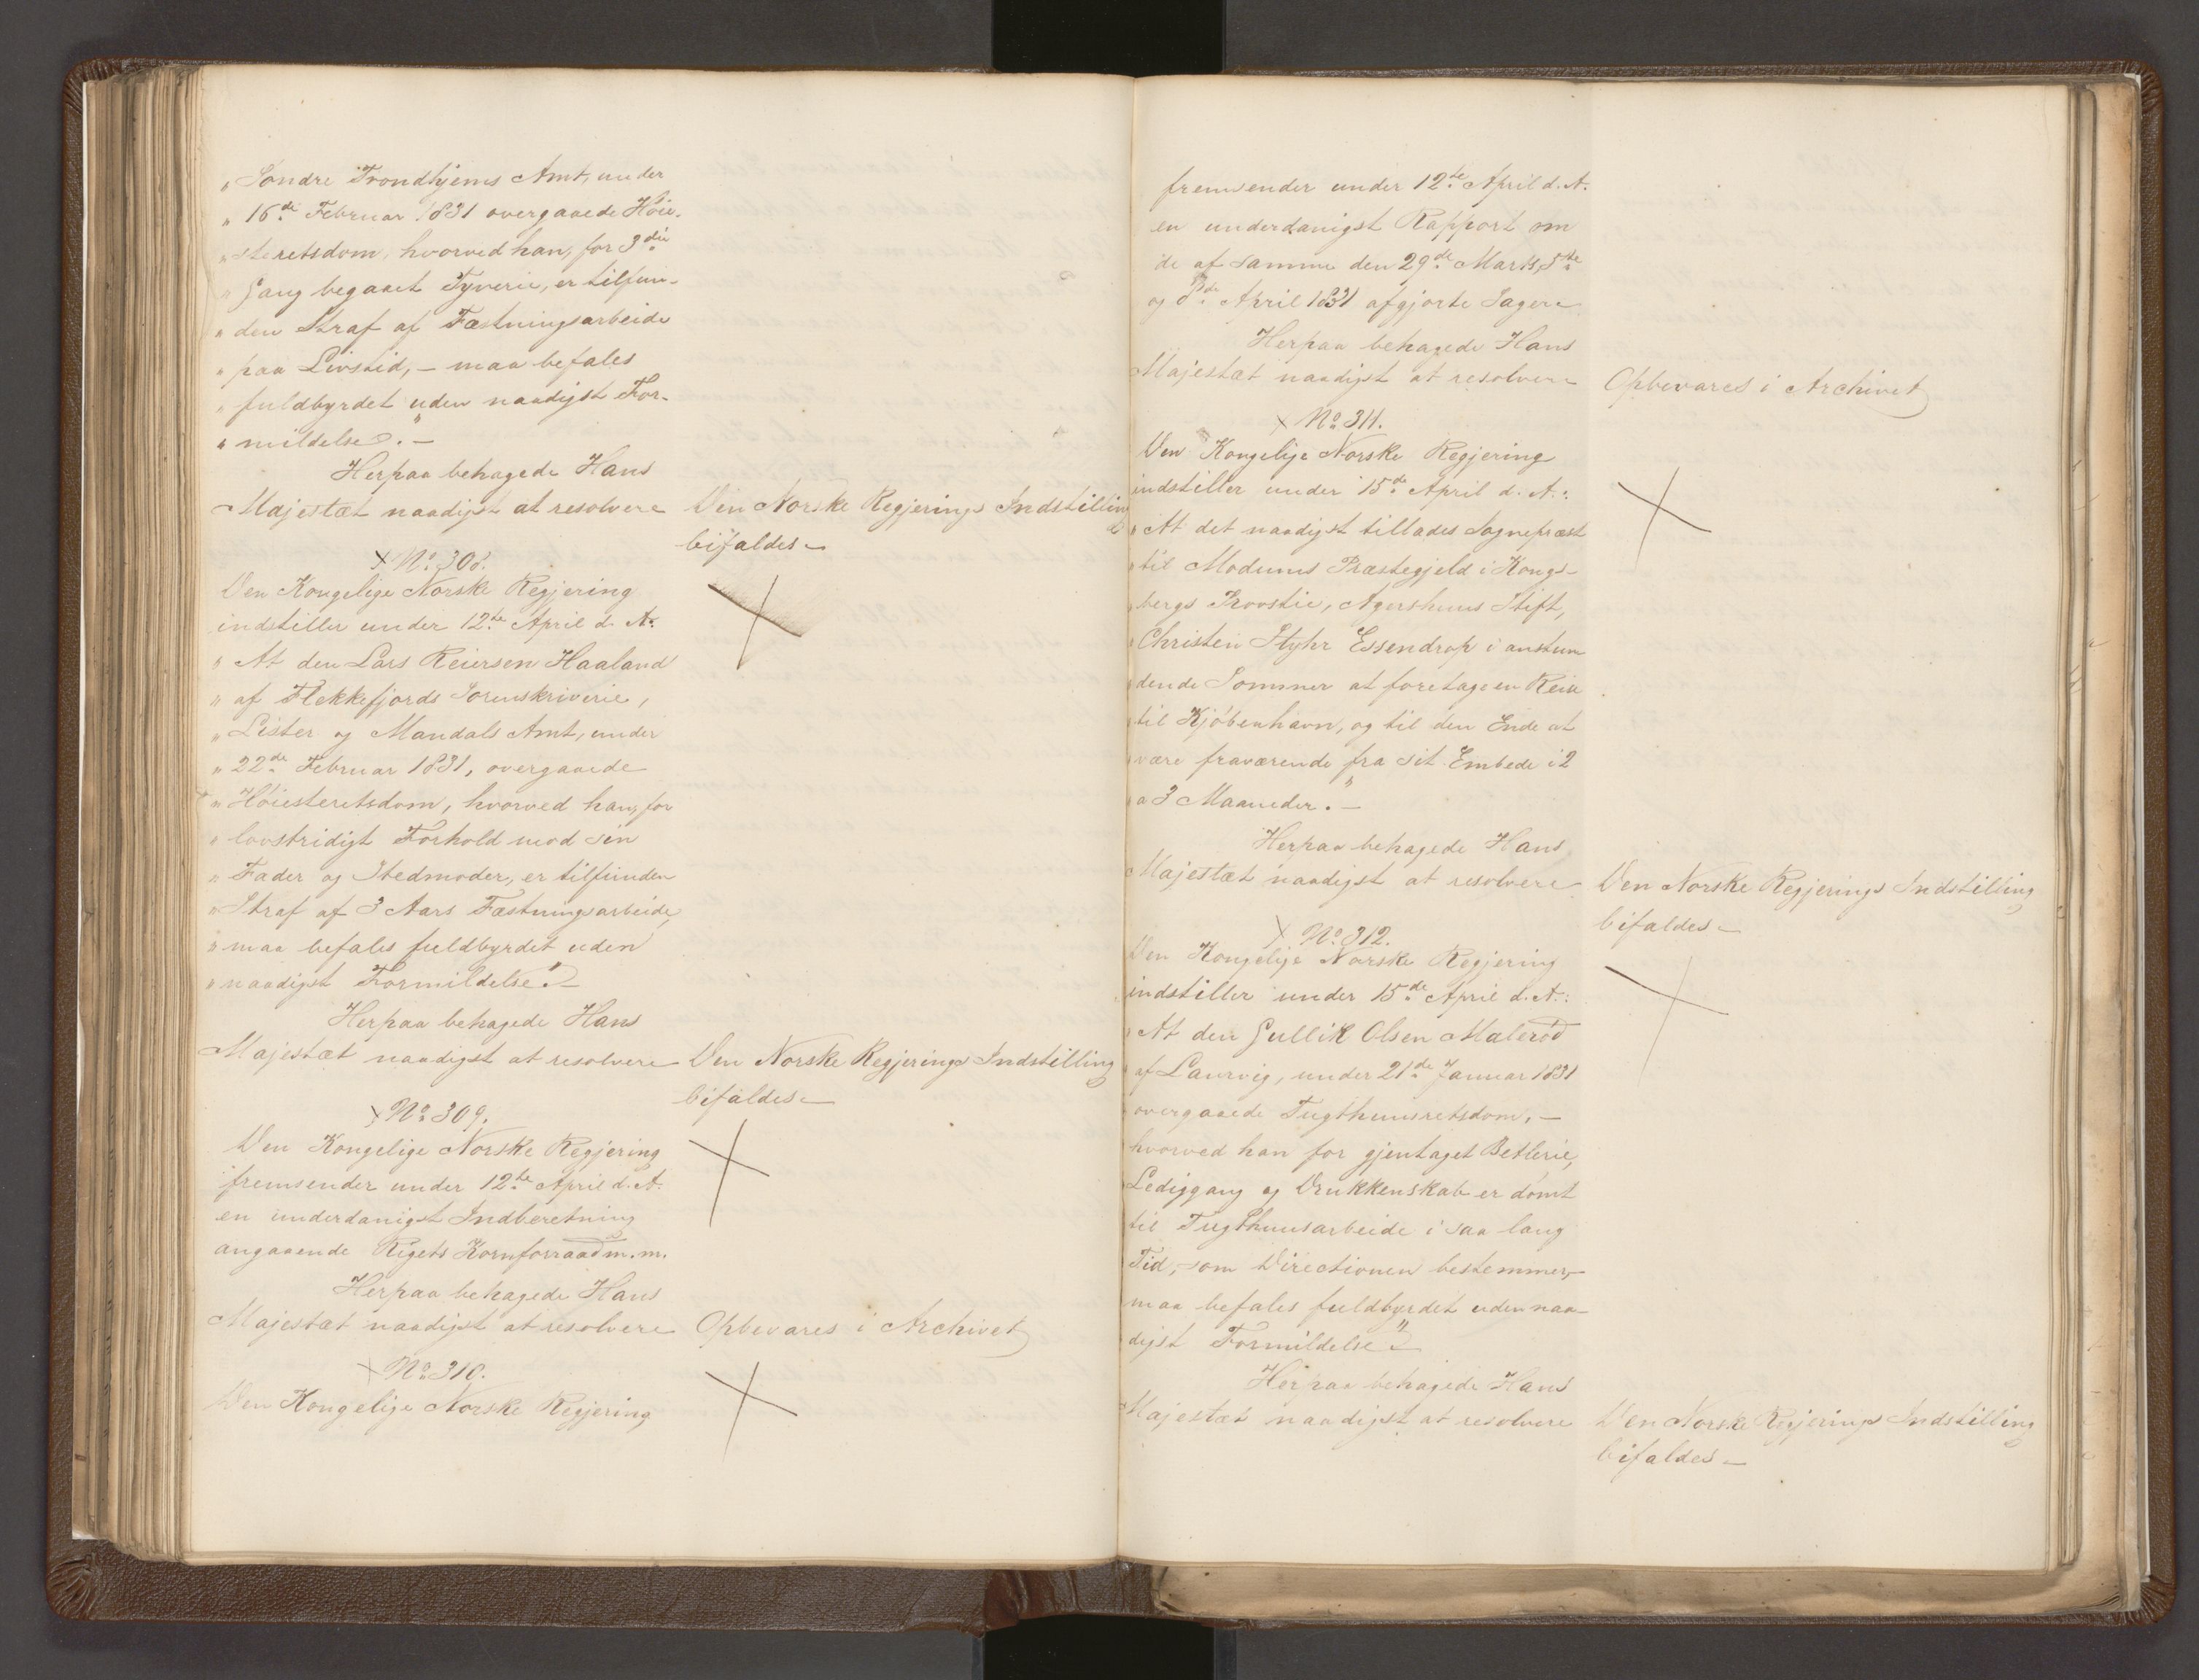 „Søndre Trondhjems Amt, under
„16de Februar 1831 overgaaede Høie-
„steretsdom, hvorved han, for 3die
„Gang begaaet Tyverie, er tilfun-
„den Straf af Fæstningsarbeide
„paa Livstid, – maa befales
„fuldbyrdet uden naadigst For-
„mildelse.” –
Herpaa behagede Hans
Majestæt naadigst at resolvere
Den Norske Regjerings Indstilling
bifaldes –
No 308.
Den Kongelige Norske Regjering
indstiller under 12te April d. A.
„At den Lars Reiersen Haaland
„af Flekkefjords Sorenskriverie,
„Lister og Mandals Amt, under
„22de Februar 1831, overgaaede
„Høiesteretsdom, hvorved han, for
„lovstridigt Forhold mod sin
„Fader og Stedmoder, er tilfunden
„Straf af 3 Aars Fæstningsarbeide,
„maa befales fuldbyrdet uden
„naadigst Formildelse.” –
Herpaa behagede Hans
Majestæt naadigst at resolvere
Den Norske Regjerings Indstilling
bifaldes –
No 309.
Den Kongelige Norske Regjering
fremsender under 12te April d. A.
en underdanigst Indberetning
angaaende Rigets Kornforraad m. m.
Herpaa behagede Hans
Majestæt naadigst at resolvere
Opbevares i Archivet
No 310.
Den Kongelige Norske Regjering
fremsender under 12te April d. A.
en underdanigst Rapport om
de af samme den 29de Marts, 5te
og 8de April 1831 afgjorte Sager.
Herpaa behagede Hans
Majestæt naadigst at resolvere
Opbevares i Archivet
No 311.
Den Kongelige Norske Regjering
indstiller under 15de April d. A.:
„At det naadigst tillades Sognepræst
„til Modums Præstegjeld i Kongs-
„bergs Provstie, Agershuus Stift,
„Christen Styhr Essendrop i anstun
„dende Sommer at foretage en Reise
„til Kjøbenhavn, og til den Ende at
„være fraværende fra sit Embede i 2
„a 3 Maaneder.” –
Herpaa behagede Hans
Majestæt naadigst at resolvere
Den Norske Regjerings Indstilling
bifaldes –
No 312.
Den Kongelige Norske Regjering
indstiller under 15de April d. A.:
„At den Gullik Olsen Malerød
„af Laurvig, under 21de Januar 1831
„overgaaede Tugthuusretsdom, –
hvorved han for gjentaget Betlerie,
Lediggang og Drukkenskab er dømt
til Tugthuusarbeide i saa lang
Tid, som Directionen bestemmer, –
maa befales fuldbyrdet uden naa-
digst Formildelse” –
Herpaa behagede Hans
Majestæt naadigst at resolvere
Den Norske Regjerings Indstilling
bifaldes –